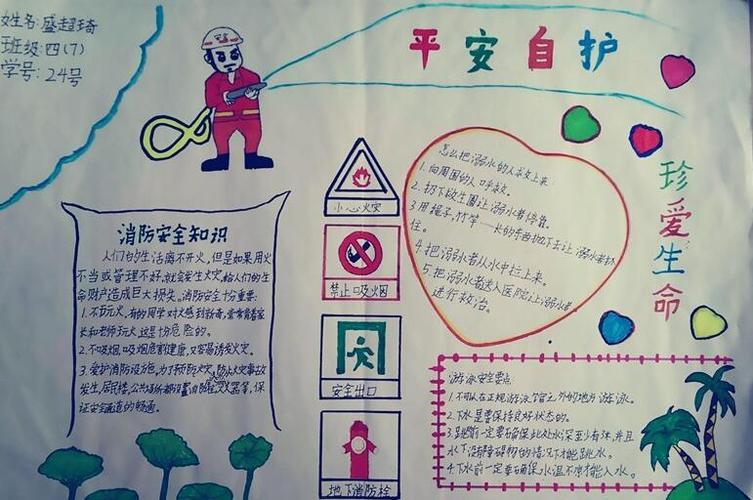 姓名:盛超琦
班级:四(7)
学号:24号
平安自护
珍爱生命
消防安全知识
人们的生活离不开火,但是如果用火
不当或管理不好,就会发生火灾,给人们的生
命财产造成巨大损失。消防安全十分重要:
1.不玩火,有的同学对火感到新奇,常常背着家
长和老师玩火,这是十分危险的。
2.不吸烟,吸烟危害健康,又容易诱发火灾。
3.爱护消防设施。为了预防火灾,防止火灾事故
发生,居民楼,公共场所都设置消防栓,灭火器等,保
证安全通道的畅通。
小心火灾
禁止吸烟
安全出口
地下消防栓
怎么把溺水的人救上来:
1.向周围的人呼救。
2.扔下救生圈让溺水者停靠。
3.用绳子,竹竿一长的东西扔下去让溺水者抓
住。
4.把溺水者从水中拉上来。
5.把溺水者送入医院,让溺水者
进行救治。
游泳安全要点
1.不可以在正规游泳馆之外的地方游泳。
2.下水是要保持良好状态的。
3.跳水前一定要确保此处水深至少有3米,并且
水下没有障碍物的情况下才能跳水。
4.下水前一定要确保水温不凉才能入水。